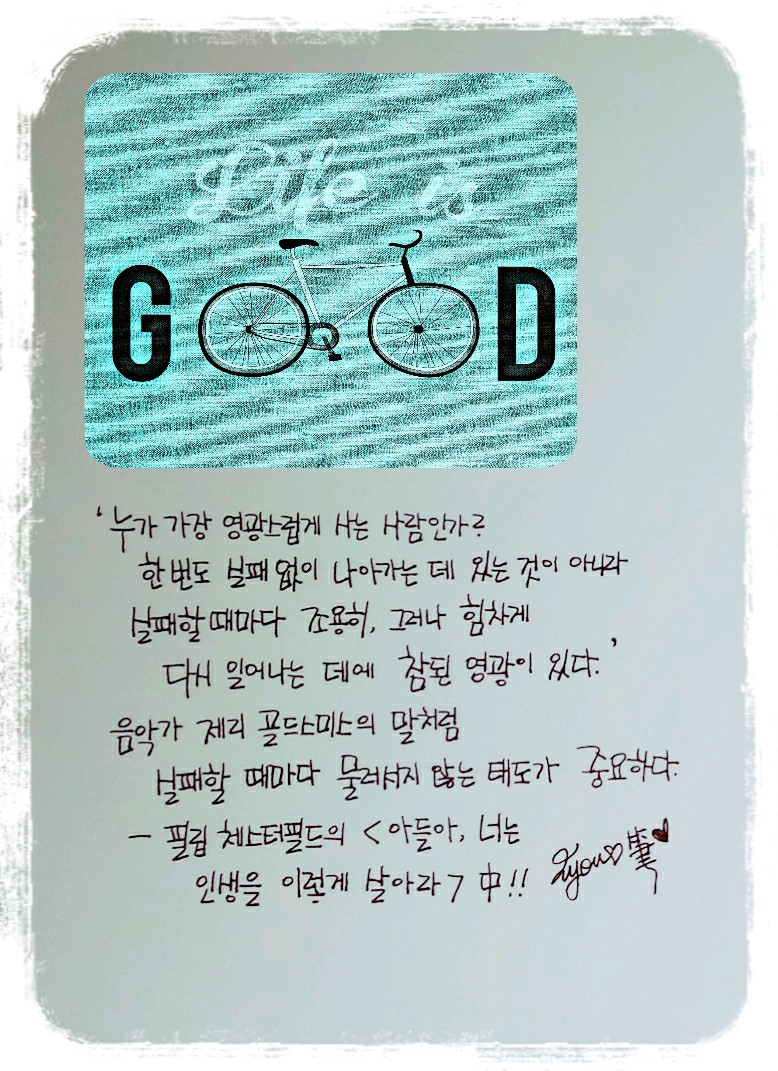 Life is
GOOD
'누가 가장 영광스럽게 사는 사람인가?
한번도 실패 없이 나아가는 데 있는 것이 아니라
실패할 때마다 조용히, 그러나 힘차게
다시 일어나는 데에 참된 영광이 있다.'
음악가 제리 골드스미스의 말처럼
실패할 때마다 물러서지 않는 태도가 중요하다.
- 필립 체스터필드의 <아들아, 너는
인생을 이렇게 살아라> 中!!